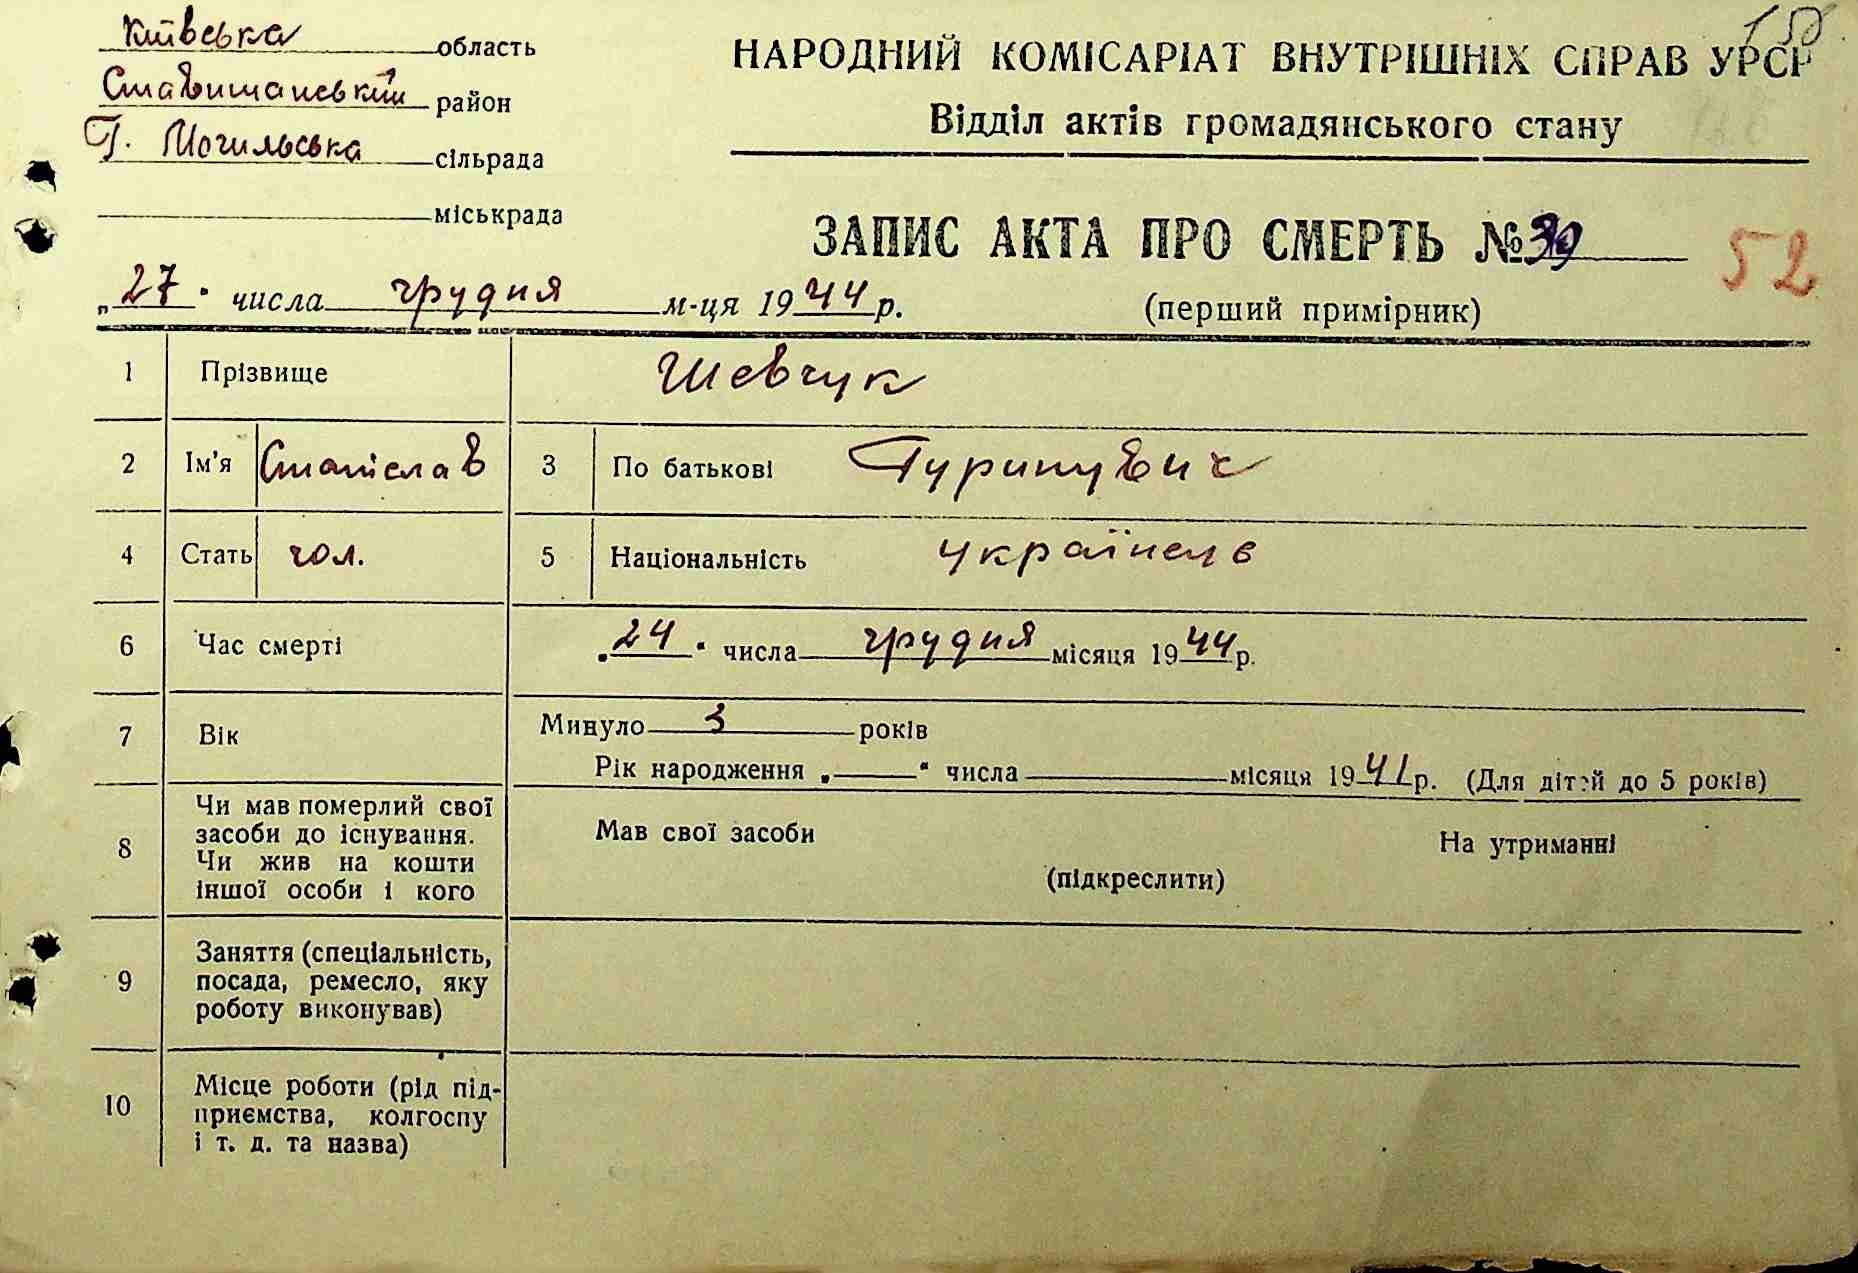 Київська область
Ставищанський район
Г. Могильська сільрада
міськрада
НАРОДНИЙ КОМІСАРІАТ ВНУТРІШНІХ СПРАВ УРСР
Відділ актів громадянського стану
ЗАПИС АКТА ПРО СМЕРТЬ №
52
„27" числа грудня м-ця 1944 р.
(перший примірник)
1 Прізвище Шевчук
2 Ім'я Станіслав 3 По батькові
4 Стать чол. 5 Національність українець
6 Час смерті „24" числа грудня місяця 1944 р.
7 Вік Минуло 3 років
Рік народження „ " числа місяця 1941 р. (Для дітей до 5 років)
8 Чи мав померлий свої засоби до існування. Чи жив на кошти іншої особи і кого
Мав свої засоби На утриманні
(підкреслити)
9 Заняття (спеціальність, посада, ремесло, яку роботу виконував)
10 Місце роботи (рід підприємства, колгоспу і т. д. та назва)